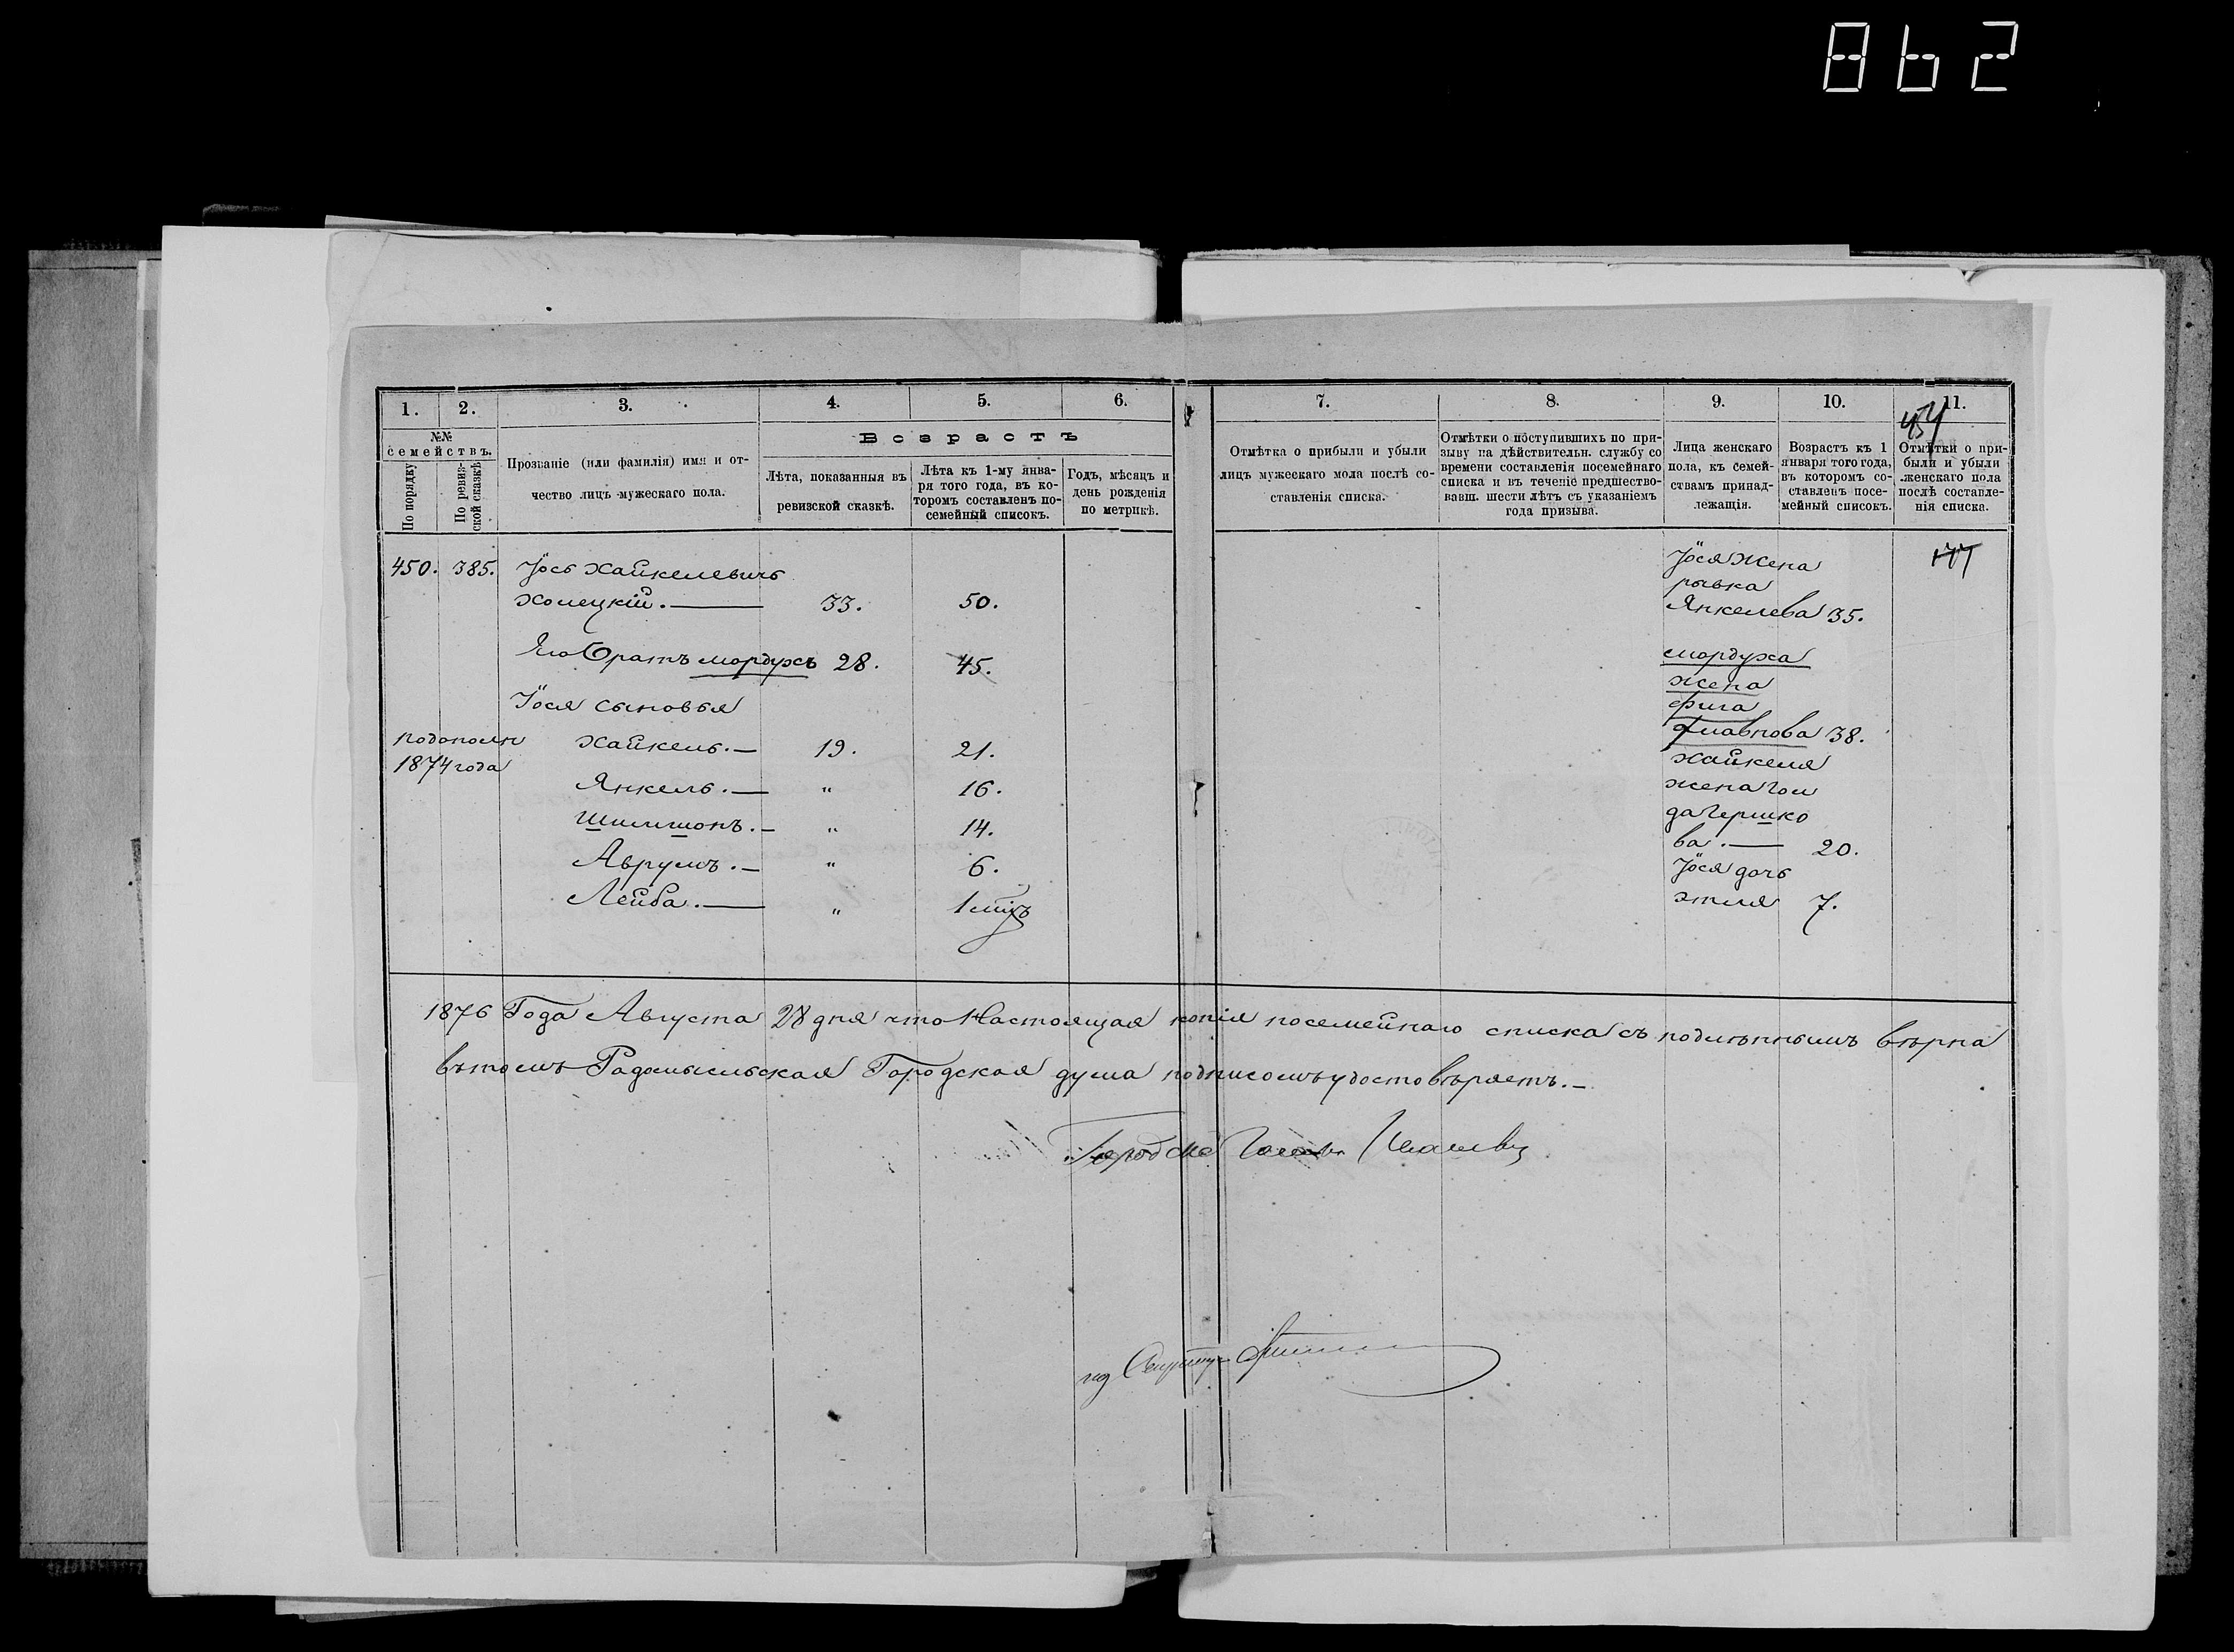 862
1. 2. 3. 4. 5. 6. 7. 8. 9. 10. 11.
454
№№
семействъ.
По порядку
По ревиз-
ской сказкѣ
Прозваніе (или фамилія) имя и от-
чество лицъ мужескаго пола.
Возрастъ
Лѣта, показанныя въ
ревизской сказкѣ.
Лѣта къ 1-му янва-
ря того года, въ ко-
торомъ составленъ по-
семейный списокъ.
Годъ, мѣсяцъ и
день рожденія
по метрикѣ.
Отмѣтка о прибыли и убыли
лицъ мужескаго мола послѣ со-
ставленія списка.
Отмѣтки о поступившихъ по при-
зыву на дѣйствительн. службу со
времени составленія посемейнаго
списка и въ теченіе предшество-
вавш. шести лѣтъ съ указаніемъ
года призыва.
Лица женскаго
пола, къ семей-
ствамъ принад-
лежащія.
Возрастъ къ 1
января того года,
въ которомъ со-
ставленъ посе-
мейный списокъ.
Отмѣтки о при-
были и убыли
женскаго пола
послѣ составле-
нія списка.
450. 385. Іось Хайкелевичъ
Холецкій. — 33. 50.
Его Братъ мордухъ 28. 45.
Іося сыновья
подополн
1874 года
Хайкель. — 19. 21.
Янкель. — " 16.
Шимшонъ. — " 14.
Аврумъ. — " 6.
Лейба. — " 1 мцъ
Іося жена
ривка
Янкелева 35.
мордуха
жена
фига
38.
хайкеля
жена гол
да гершко
ва. — 20.
Іося дочь
этля 7.
177
1876 Года Августа 28 дня что Настоящая копія посемейнаго списка съ подлѣннымъ вѣрна
въ томъ Радомысльская Городская дума подписомъ удостовѣряетъ. —